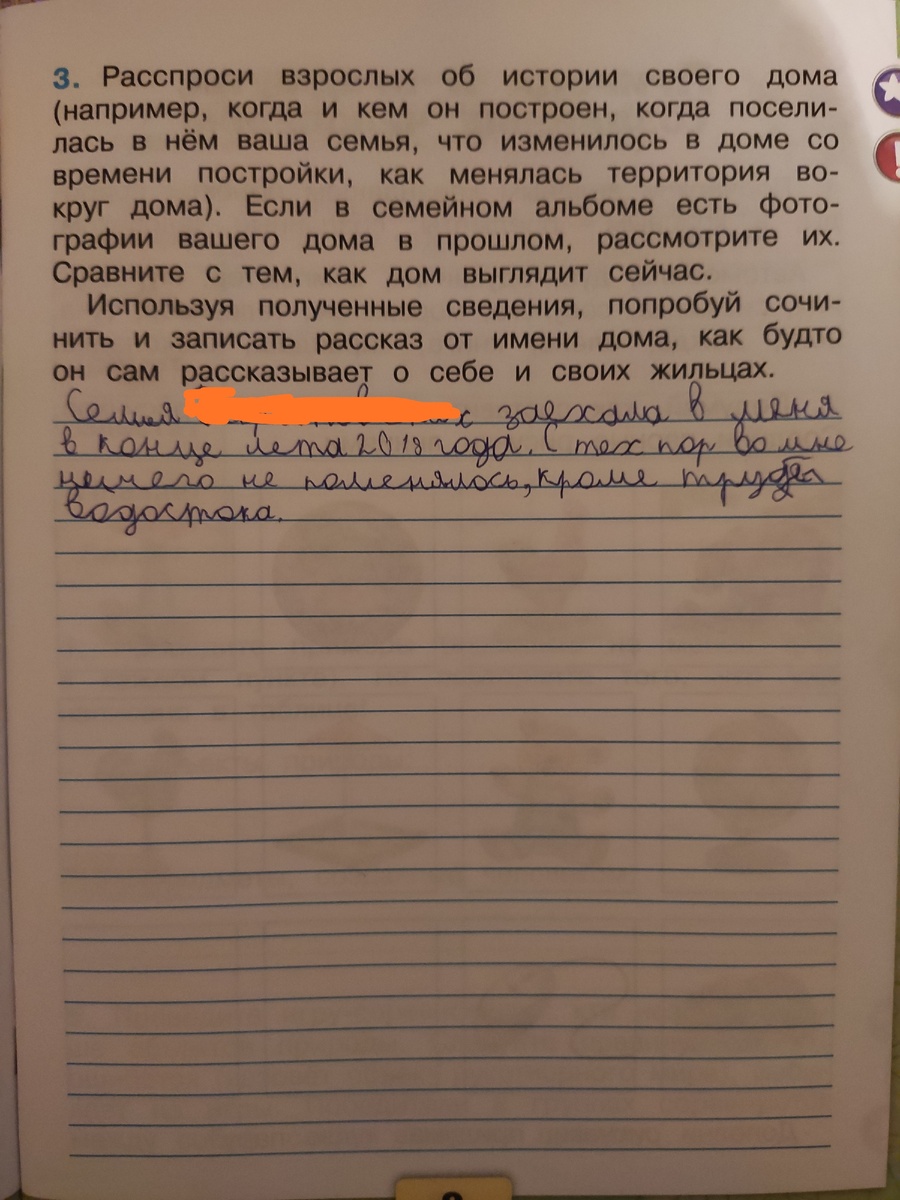 3. Расспроси взрослых об истории своего дома
(например, когда и кем он построен, когда посели-
лась в нём ваша семья, что изменилось в доме со
времени постройки, как менялась территория во-
круг дома). Если в семейном альбоме есть фото-
графии вашего дома в прошлом, рассмотрите их.
Сравните с тем, как дом выглядит сейчас.
Используя полученные сведения, попробуй сочи-
нить и записать рассказ от имени дома, как будто
он сам рассказывает о себе и своих жильцах.
Семья заехала в меня
в конце лета 2018 года. С тех пор во мне
нечего не поменялось, кроме
водостока.